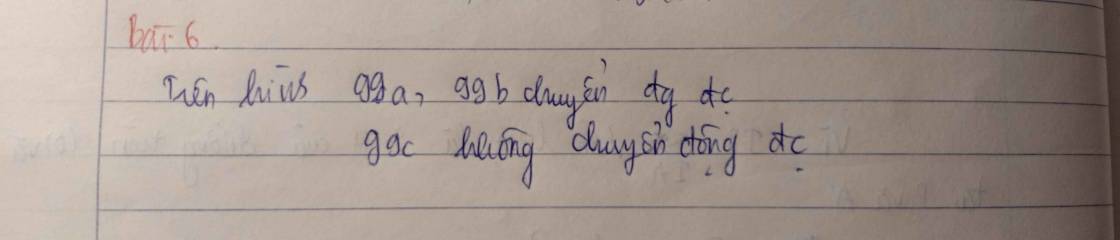 bài 6.
Trên hình 99a, 99b chuyển đg đc
99c không chuyển động đc